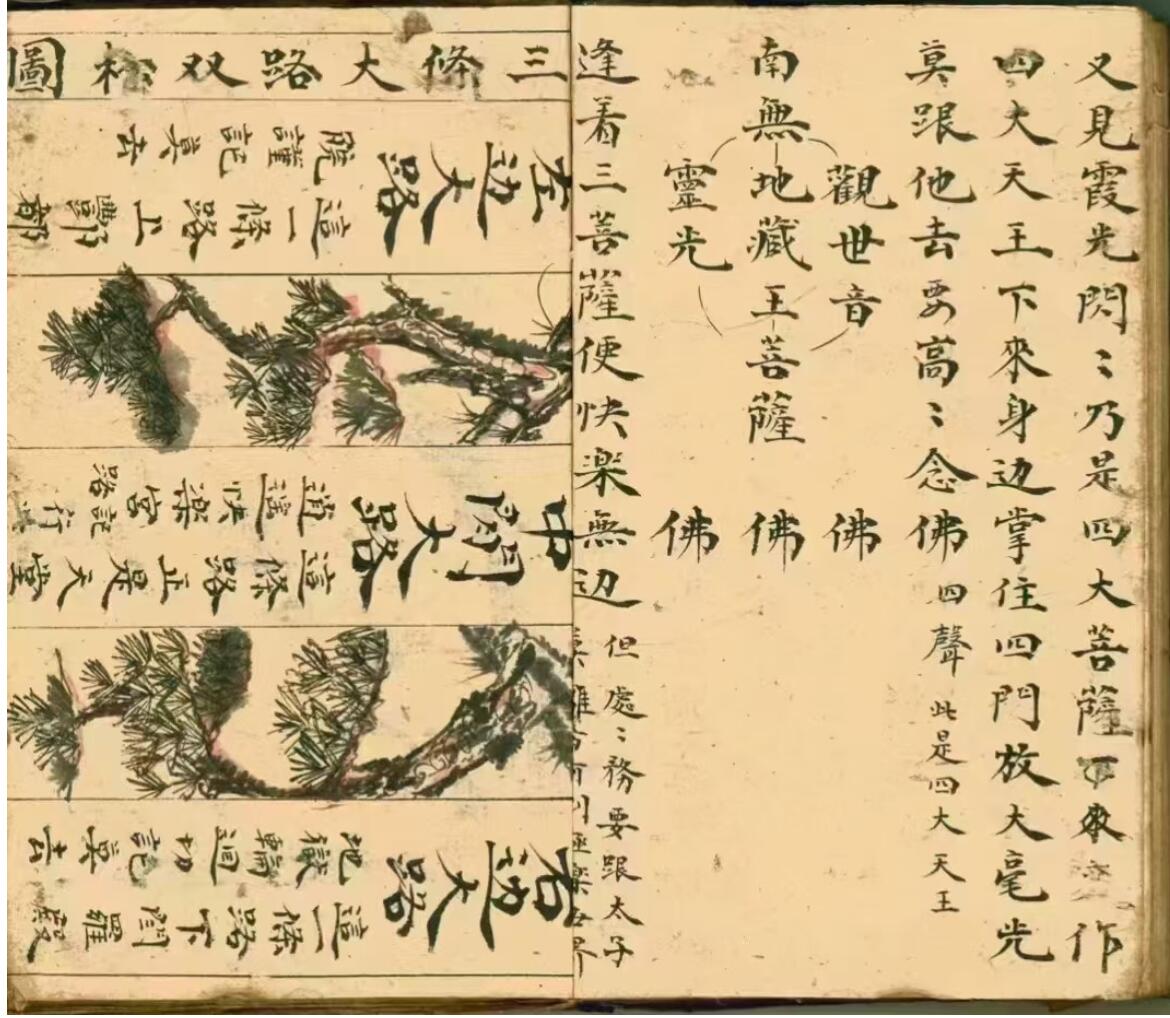 又見霞光閃〻乃是四大菩薩下來作
四大天王下來身边掌住四門放大毫光
莫跟他去要高〻念佛四聲此是四大天王
觀世音佛
南無地藏王菩薩佛
靈光佛
逢着三菩薩便快楽無边但處〻務要跟太子
三條大路双松圖
左边大路
這一條路上酆都
謹記莫去
中間大路
這條路正是天堂
逍遥快楽宮記路行
右边大路
這一條路下閻羅殿
地獄輪迴切記莫去